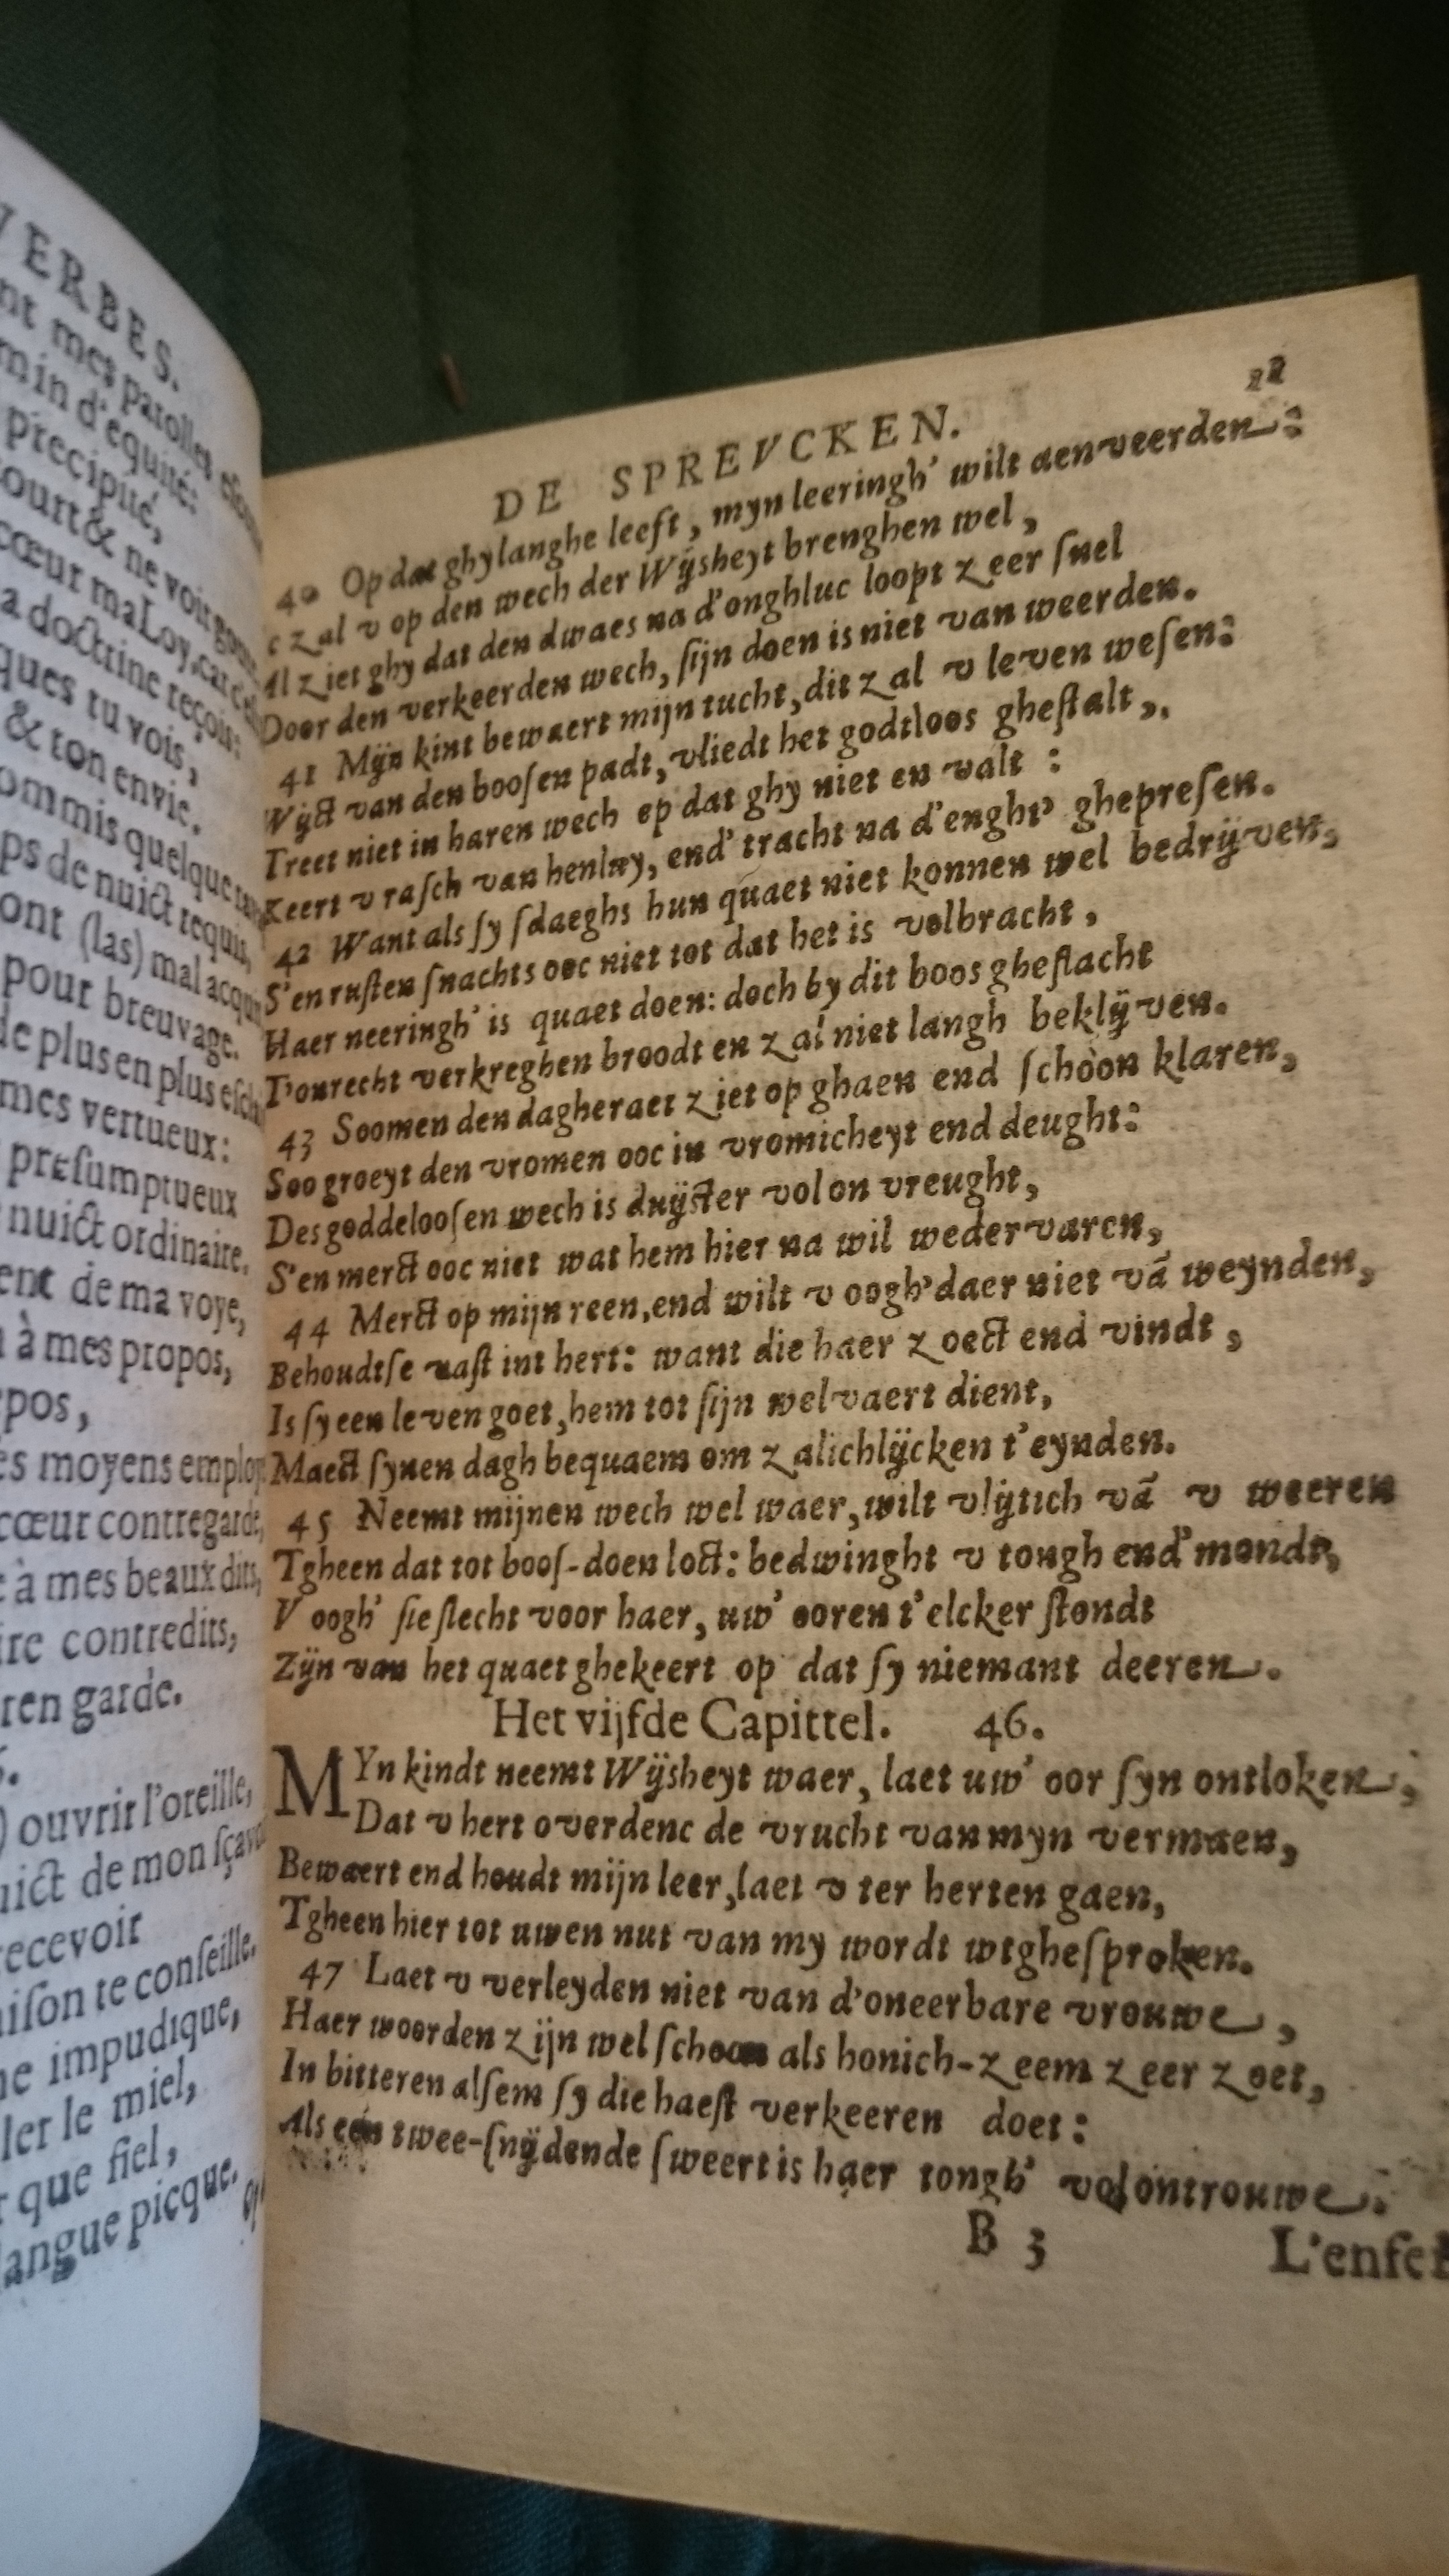 VERBES.
nt mes parolles
min d'equité:
precipité,
court & ne voir
cœur ma Loy, car
a doctrine reçoit:
ques tu vois,
& ton envie.
ommis quelque
ps de nuict requis,
ont (las) mal acquis
pour breuvage.
de plus en plus
mes vertueux:
presumptueux
nuict ordinaire.
ent de ma voye,
à mes propos,
pos,
es moyens
cœur contregarde,
à mes beaux dits,
ire contredits,
ren garde.
) ouvrir l'oreille,
uict de mon
recevoir
aison te conseille.
ne impudique,
ller le miel,
que fiel,
langue picque.
DE SPREVCKEN.
40 Op dat ghy langhe leeft, myn leeringh' wilt aenveerden:
c zal v op den wech der Wijsheyt brenghen wel,
Al ziet ghy dat den dwaes na d'onghluc loopt zeer snel
Door den verkeerden wech, sijn doen is niet van weerden.
41 Mijn kint bewaert mijn tucht, dit zal v leven wesen:
Wijct van den boosen padt, vliedt het godtloos ghestalt,
Treet niet in haren wech op dat ghy niet en valt :
Keert v rasch van henluy, end' tracht na d'enght' ghepresen.
42 Want als sy sdaeghs hun quaet niet konnen wel bedrijven,
S'en rusten snachts ooc niet tot dat het is volbracht,
Haer neeringh' is quaet doen: doch by dit boos gheslacht
T'onrecht verkreghen broodt en zal niet langh beklijven.
43 Soomen den dagheraet ziet op ghaen end schoon klaren,
Soo groeyt den vromen ooc in vromicheyt end deught:
Des goddeloosen wech is duijster vol on vreught,
S'en merct ooc niet wat hem hier na wil wedervaren,
44 Merct op mijn reen, end wilt v oogh' daer niet vā weynden,
Behoudtse vast int hert: want die haer zoect end vindt,
Is sy een leven goet, hem tot sijn welvaert dient,
Maect synen dagh bequaem om zalichlijcken t'eynden.
45 Neemt mijnen wech wel waer, wilt vlijtich vā v weeren
Tgheen dat tot boos-doen loct: bedwinght v tongh end' mondt,
V oogh' sie slecht voor haer, uw' ooren t'elcker stondt
Zijn van het quaet ghekeert op dat sy niemant deeren.
Het vijfde Capittel. 46.
MYn kindt neemt Wijsheyt waer, laet uw' oor syn ontloken,
Dat v hert overdenc de vrucht van myn vermaen,
Bewaert end houdt mijn leer, laet v ter herten gaen,
Tgheen hier tot uwen nut van my wordt wtghesproken.
47 Laet v verleyden niet van d'oneerbare vrouwe,
Haer woorden zijn wel schoon als honich-zeem zeer zoet,
In bitteren alsem sy die haest verkeeren doet:
Als een twee-snijdende sweert is haer tongh' vol ontrouwe.
B 3